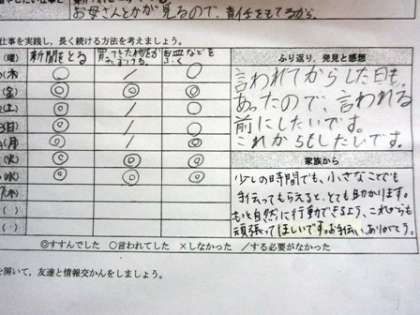 お母さんとかが見るので、責任をもてるから。
仕事を実践し、長く続ける方法を考えましょう。
(曜) 新聞をとる
ふり返り、発見と感想
(木) ◎ / ○
(金) ◎ ◎ ◎
(土) ○ / ○
(日) ◎ / ○
(月) ◎ / ◎
(火) ◎ ◎ ◎
(水) ◎ ◎ ◎
(木)
( )
( )
言われてからした日も、
あったので、言われる
前にしたいです。
これからもしたいです。
家族から
少しの時間でも、小さなことでも
手伝ってもらえると、とても助かります。
もっと自然に行動できるよう、これからも
頑張ってほしいです。お手伝い、ありがとう。
◎すすんでした ○言われてした ×しなかった /する必要がなかった
を開いて、友達と情報交かんをしましょう。